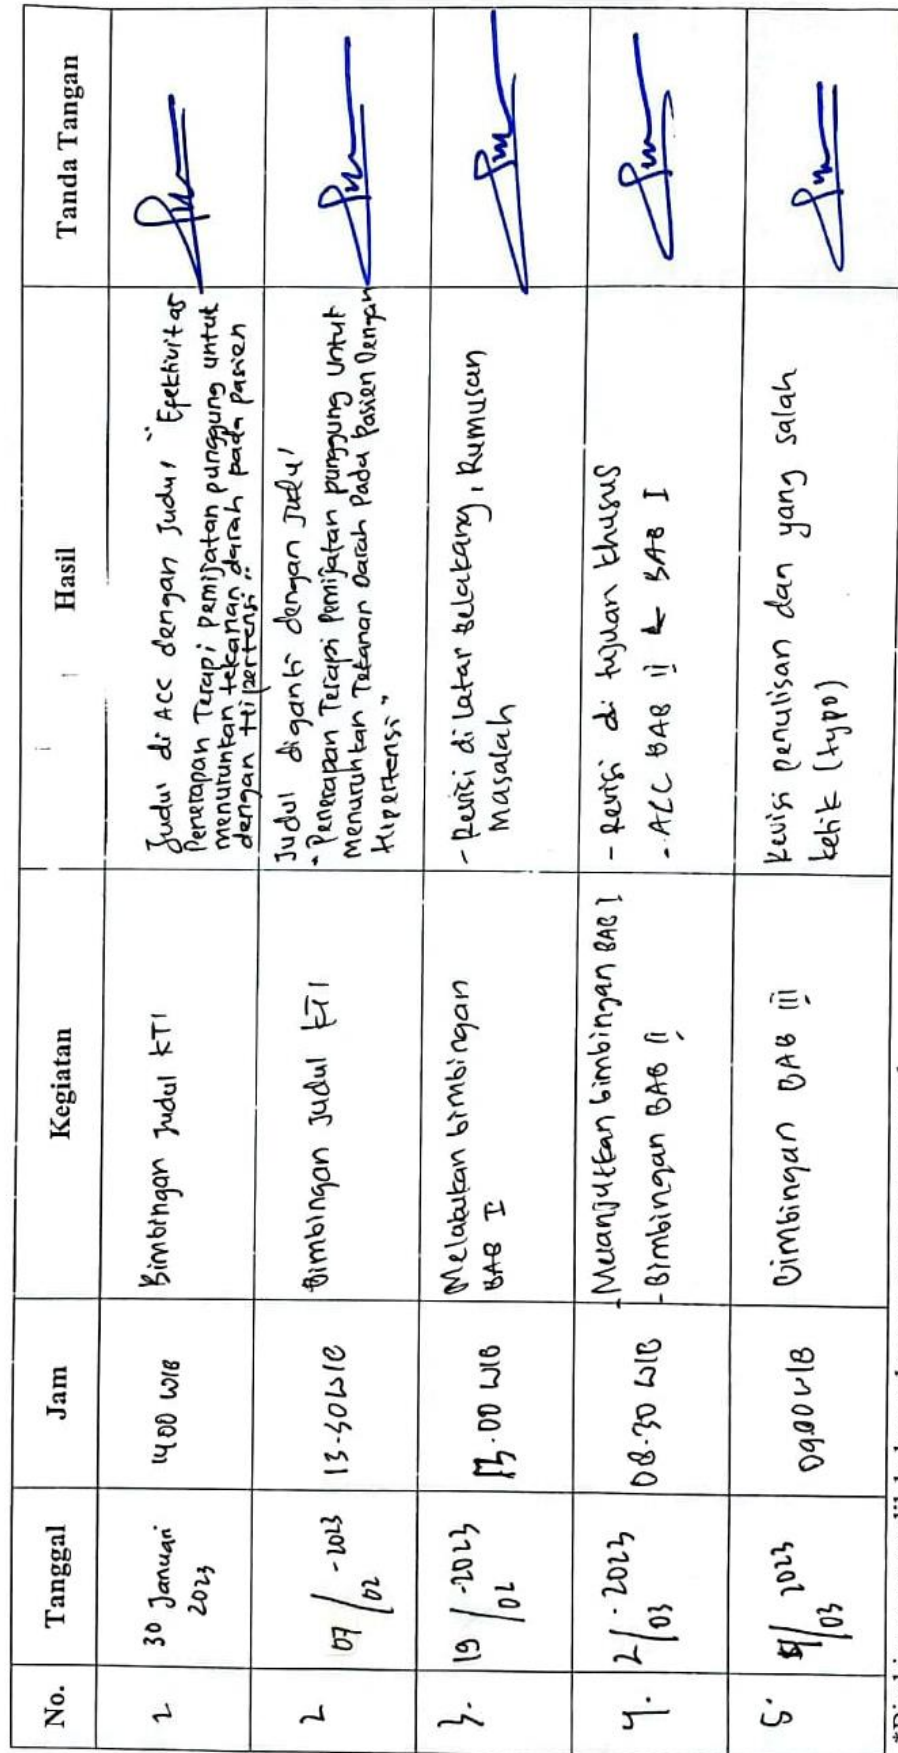 No. Tanggal Jam Kegiatan Hasil Tanda Tangan
2 30 Januari 2023 1400 WIB Bimbingan Judul KTI
Judul di ACC dengan Judul "Efektivitas
Penerapan Terapi pemijatan punggung untuk
menurunkan tekanan darah pada pasien
dengan Hipertensi"
2 07/02-2023 13-30 WIB Bimbingan Judul KTI
Judul diganti dengan Judul
"Penerapan Terapi Pemijatan punggung Untuk
Menurunkan Tekanan Darah Pada Pasien Dengan
Hipertensi"
3. 19/02-2023 13.00 WIB Melakukan bimbingan
BAB I
- Revisi di Latar Belakang, Rumusan
Masalah
4. 2/03-2023 08.30 WIB - Melanjutkan bimbingan BAB I
- Bimbingan BAB II
- Revisi di tujuan khusus
- ACC BAB II & BAB I
5. /03 2023 09.00 WIB Bimbingan BAB III
Revisi penulisan dan yang salah
ketik (typo)